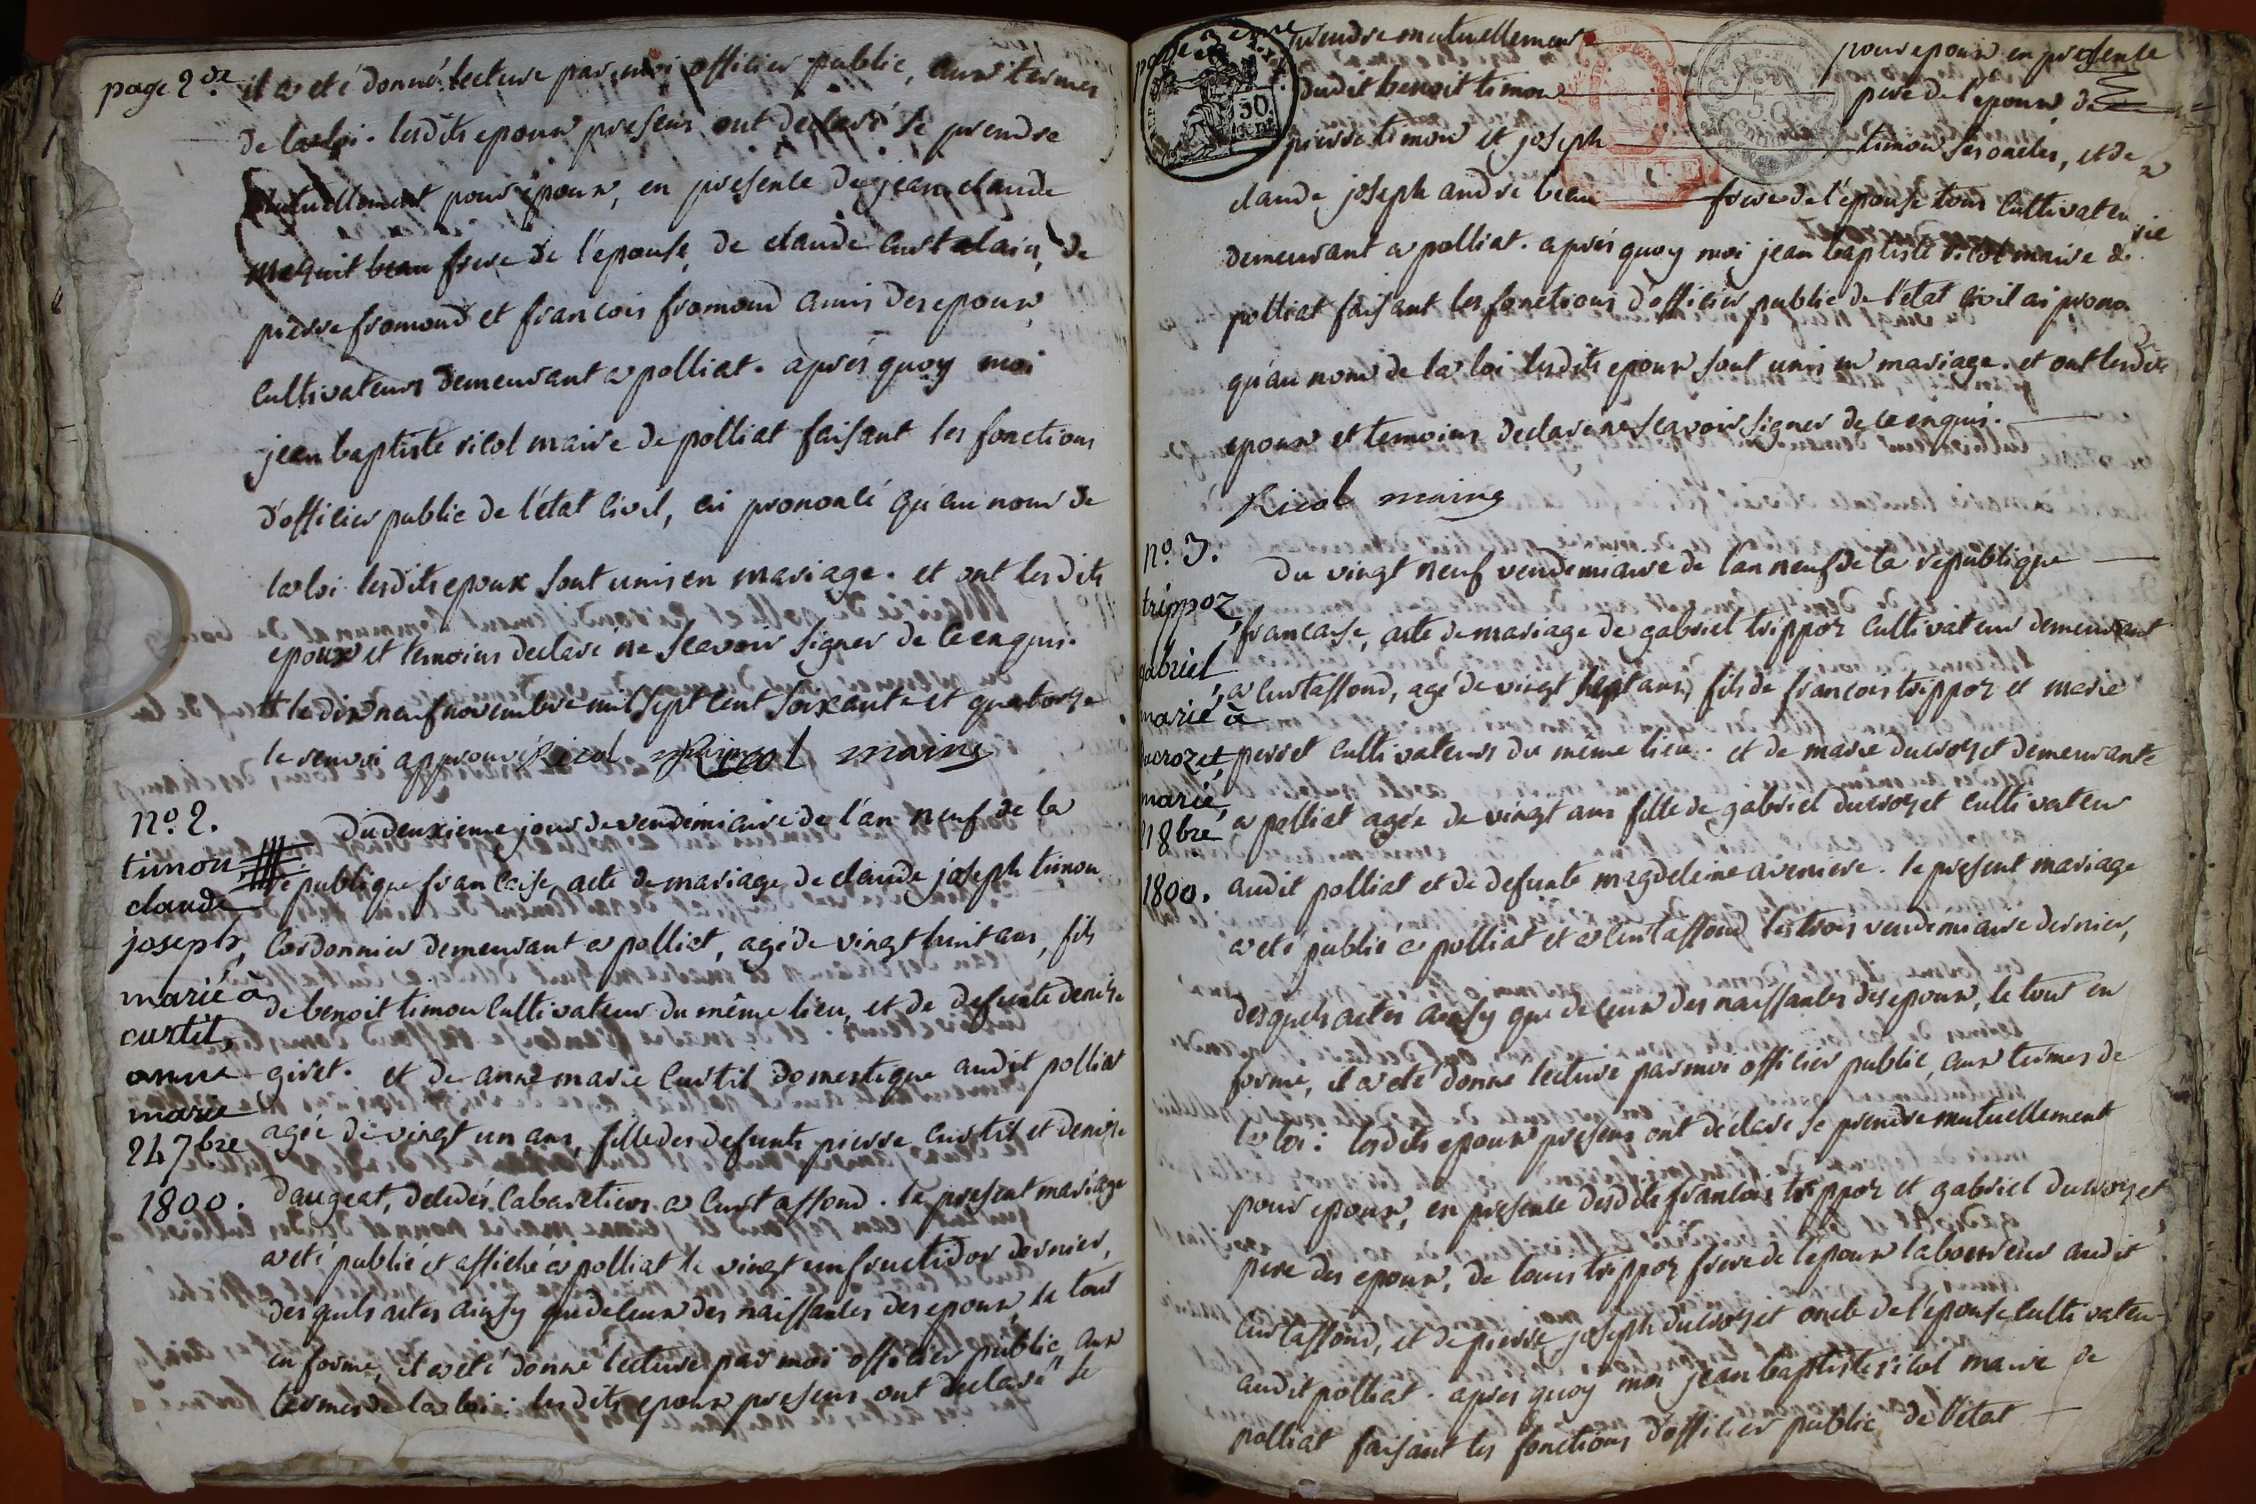 page 2de
il a eté donné lecture par moi officier public, aux termes
de la loi. lesdits epoux presens ont declaré se prendre
mutuellement pour epoux, en presence de jean claude
beau frere de l'epouse, de claude curtelain, de
pierre fromond et francois fromond amis des epoux,
cultivateurs demeurant a polliat. après quoy moi
jean baptiste ricol maire de polliat faisant les fonctions
d'officier public de l'état civil, ai prononcé qu'au nom de
la loi lesdits epoux sont unis en mariage. et ont lesdits
epoux et temoins declaré ne scavoir signer de ce enquis.
# le dix neuf novembre mil sept cent soixante et quatorze
le renvoi approuvé Ricol maire Ricol maire
n.o 2.
timon
claude
joseph,
marié à
curtil,
anne
marie
24 7bre
1800.
Du deuxieme jour de vendémiaire de l'an neuf de la
republique francaise, acte de mariage de claude joseph timon
cordonnier demeurant a polliat, agé de vingt huit ans, fils
de benoit timon cultivateur du même lieu, et de defunte denise
givet. et de anne marie curtil domestique audit polliat
agée de vingt un ans, fille des defunts pierre curtil et denise
daugeat, décédés cabaretiers a curtaffond. le present mariage
a eté publié et affiché a polliat le vingt un fructidor dernier,
desquels actes ainsy que de ceux des naissances des epoux, le tout
en forme, il a eté donné lecture par moi officier public, aux
termes de la loi: lesdits epoux presens ont declaré se
page 3eme
prendre mutuellement pour epoux en presence
dudit benoit timon pere de l'epoux, de
pierre timon et joseph timon ses oncles, et de
claude joseph andre beau frere de l'epouse tous cultivateurs
demeurant a polliat. après quoy moi jean baptiste ricol maire de
polliat faisant les fonctions d'officier public de l'etat civil ai prononcé
qu'au nom de la loi lesdits epoux sont unis en mariage. et ont lesdits
epoux et temoins declaré ne scavoir signer de ce enquis.
Ricol maire
n.o 3.
trippoz,
gabriel,
marié à
ducrozet,
marie,
21 8bre
1800.
Du vingt neuf vendemiaire de l'an neuf de la republique
francaise, acte de mariage de gabriel trippoz cultivateur demeurant
a curtaffond, agé de vingt sept ans, fils de francois trippoz et marie
perret cultivateurs du meme lieu. et de marie ducrozet demeurante
a polliat agée de vingt ans fille de gabriel ducrozet cultivateur
audit polliat et de defunte magdeleine aveniere. le present mariage
a eté publié a polliat et a curtaffond le trois vendemiaire dernier,
desquels actes ainsy que de ceux des naissances des epoux, le tout en
forme, il a eté donné lecture par moi officier public, aux termes de
la loi: lesdits epoux presens ont déclaré se prendre mutuellement
pour epoux, en presence desdits francois trippoz et gabriel ducrozet,
pere des epoux, de louis trippoz frere de l'epoux laboureur audit
curtaffond, et de pierre joseph ducrozet oncle de l'epouse cultivateur
audit polliat. apres quoy moi jean baptiste ricol maire de
polliat faisant les fonctions d'officier public de l'état